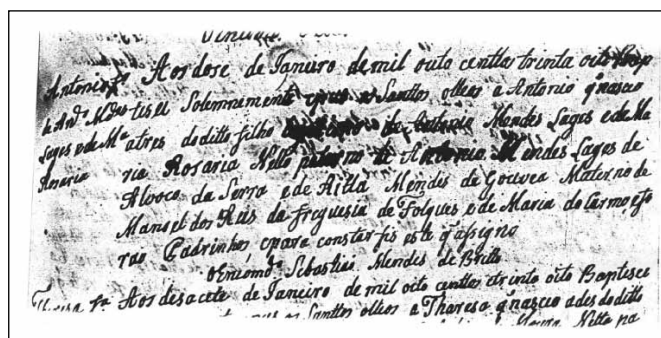 Antonio fº Aos dose de Janeiro de mil outo centtos trinta outo Bap
de Antº Mdes tisei Solemnemente e pus os Santtos olleos a Antonio q nasceo
Lages e de Mª a tres do ditto filho de Antonio Mendes Lages e de Ma
Rosaria ria Rosaria Netto paterno de Antonio Mendes Lages de
Alvoco da Serra e de Ritta Mendes de Gouvea Materno de
Manoel dos Reis da freguesia de Folques e de Maria do Carmo e fo
rão Padrinhos e para constar fis este q asigno
O Encomdº Sebastião Mendes de Britto
Theresa fª Aos desacete de Janeiro de mil octo centtos e trinta oito Baptisei
os Santtos olleos a Theresa q nasceo a des do ditto
Netta pa